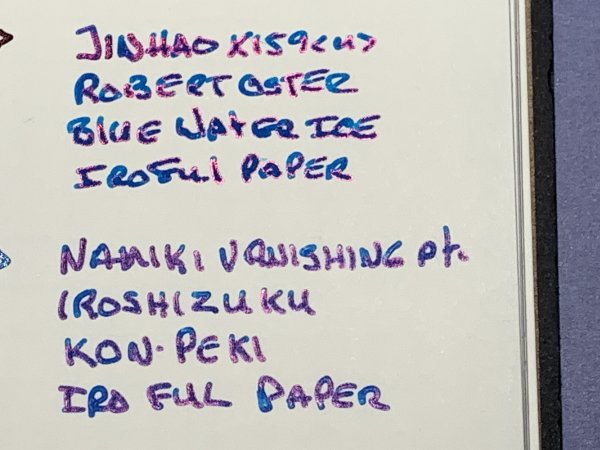 JINHAO X159 <M>
ROBERT OSTER
BLUE WATER ICE
IROFUL PAPER
NAMIKI VANISHING pt.
IROSHIZUKU
KON-PEKI
IRO FUL PAPER